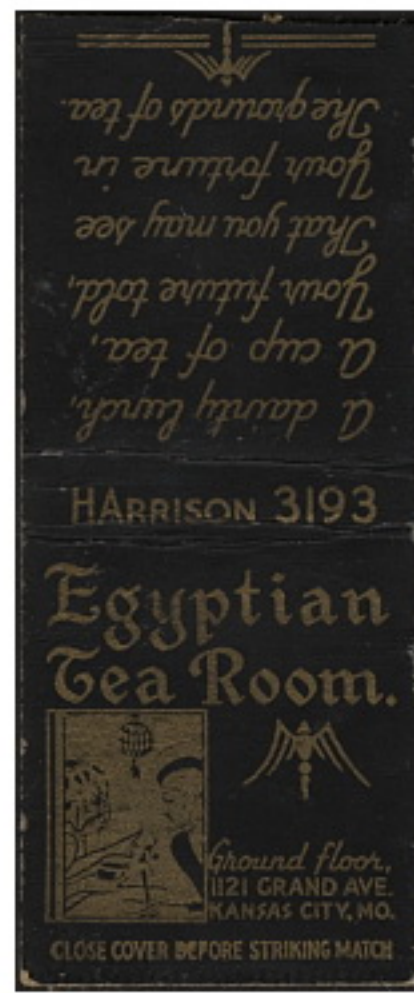 A dainty lunch,
A cup of tea,
Your future told,
That you may see
Your fortune in
The grounds of tea.
HARRISON 3193
Egyptian
Tea Room.
Ground floor,
1121 GRAND AVE.
KANSAS CITY, MO.
CLOSE COVER BEFORE STRIKING MATCH